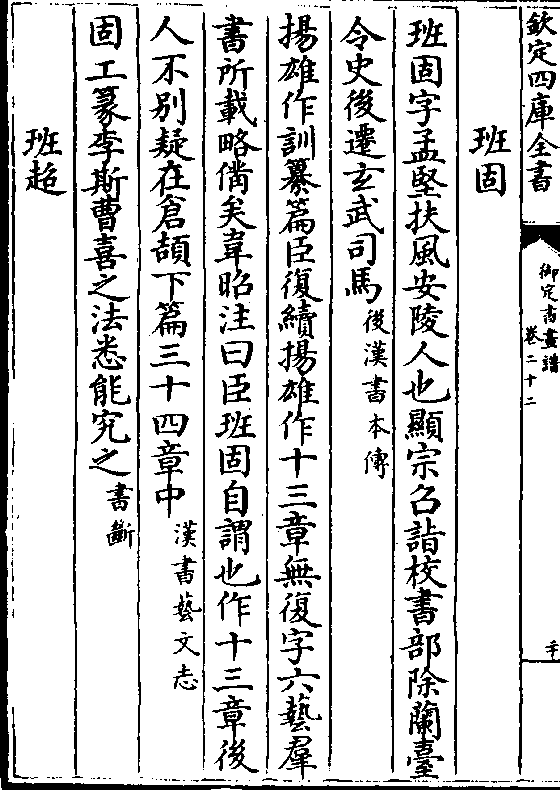 欽定四庫全書
御定書畫譜
卷二十二
班固
班固字孟堅扶風安陵人也顯宗召詣校書部除蘭臺
令史後遷玄武司馬後漢書本傳
揚雄作訓纂篇臣復續揚雄作十三章無復字六藝羣
書所載略備矣韋昭注曰臣班固自謂也作十三章後
人不別疑在倉頡下篇三十四章中漢書藝文志
固工篆李斯曹喜之法悉能究之書斷
班超